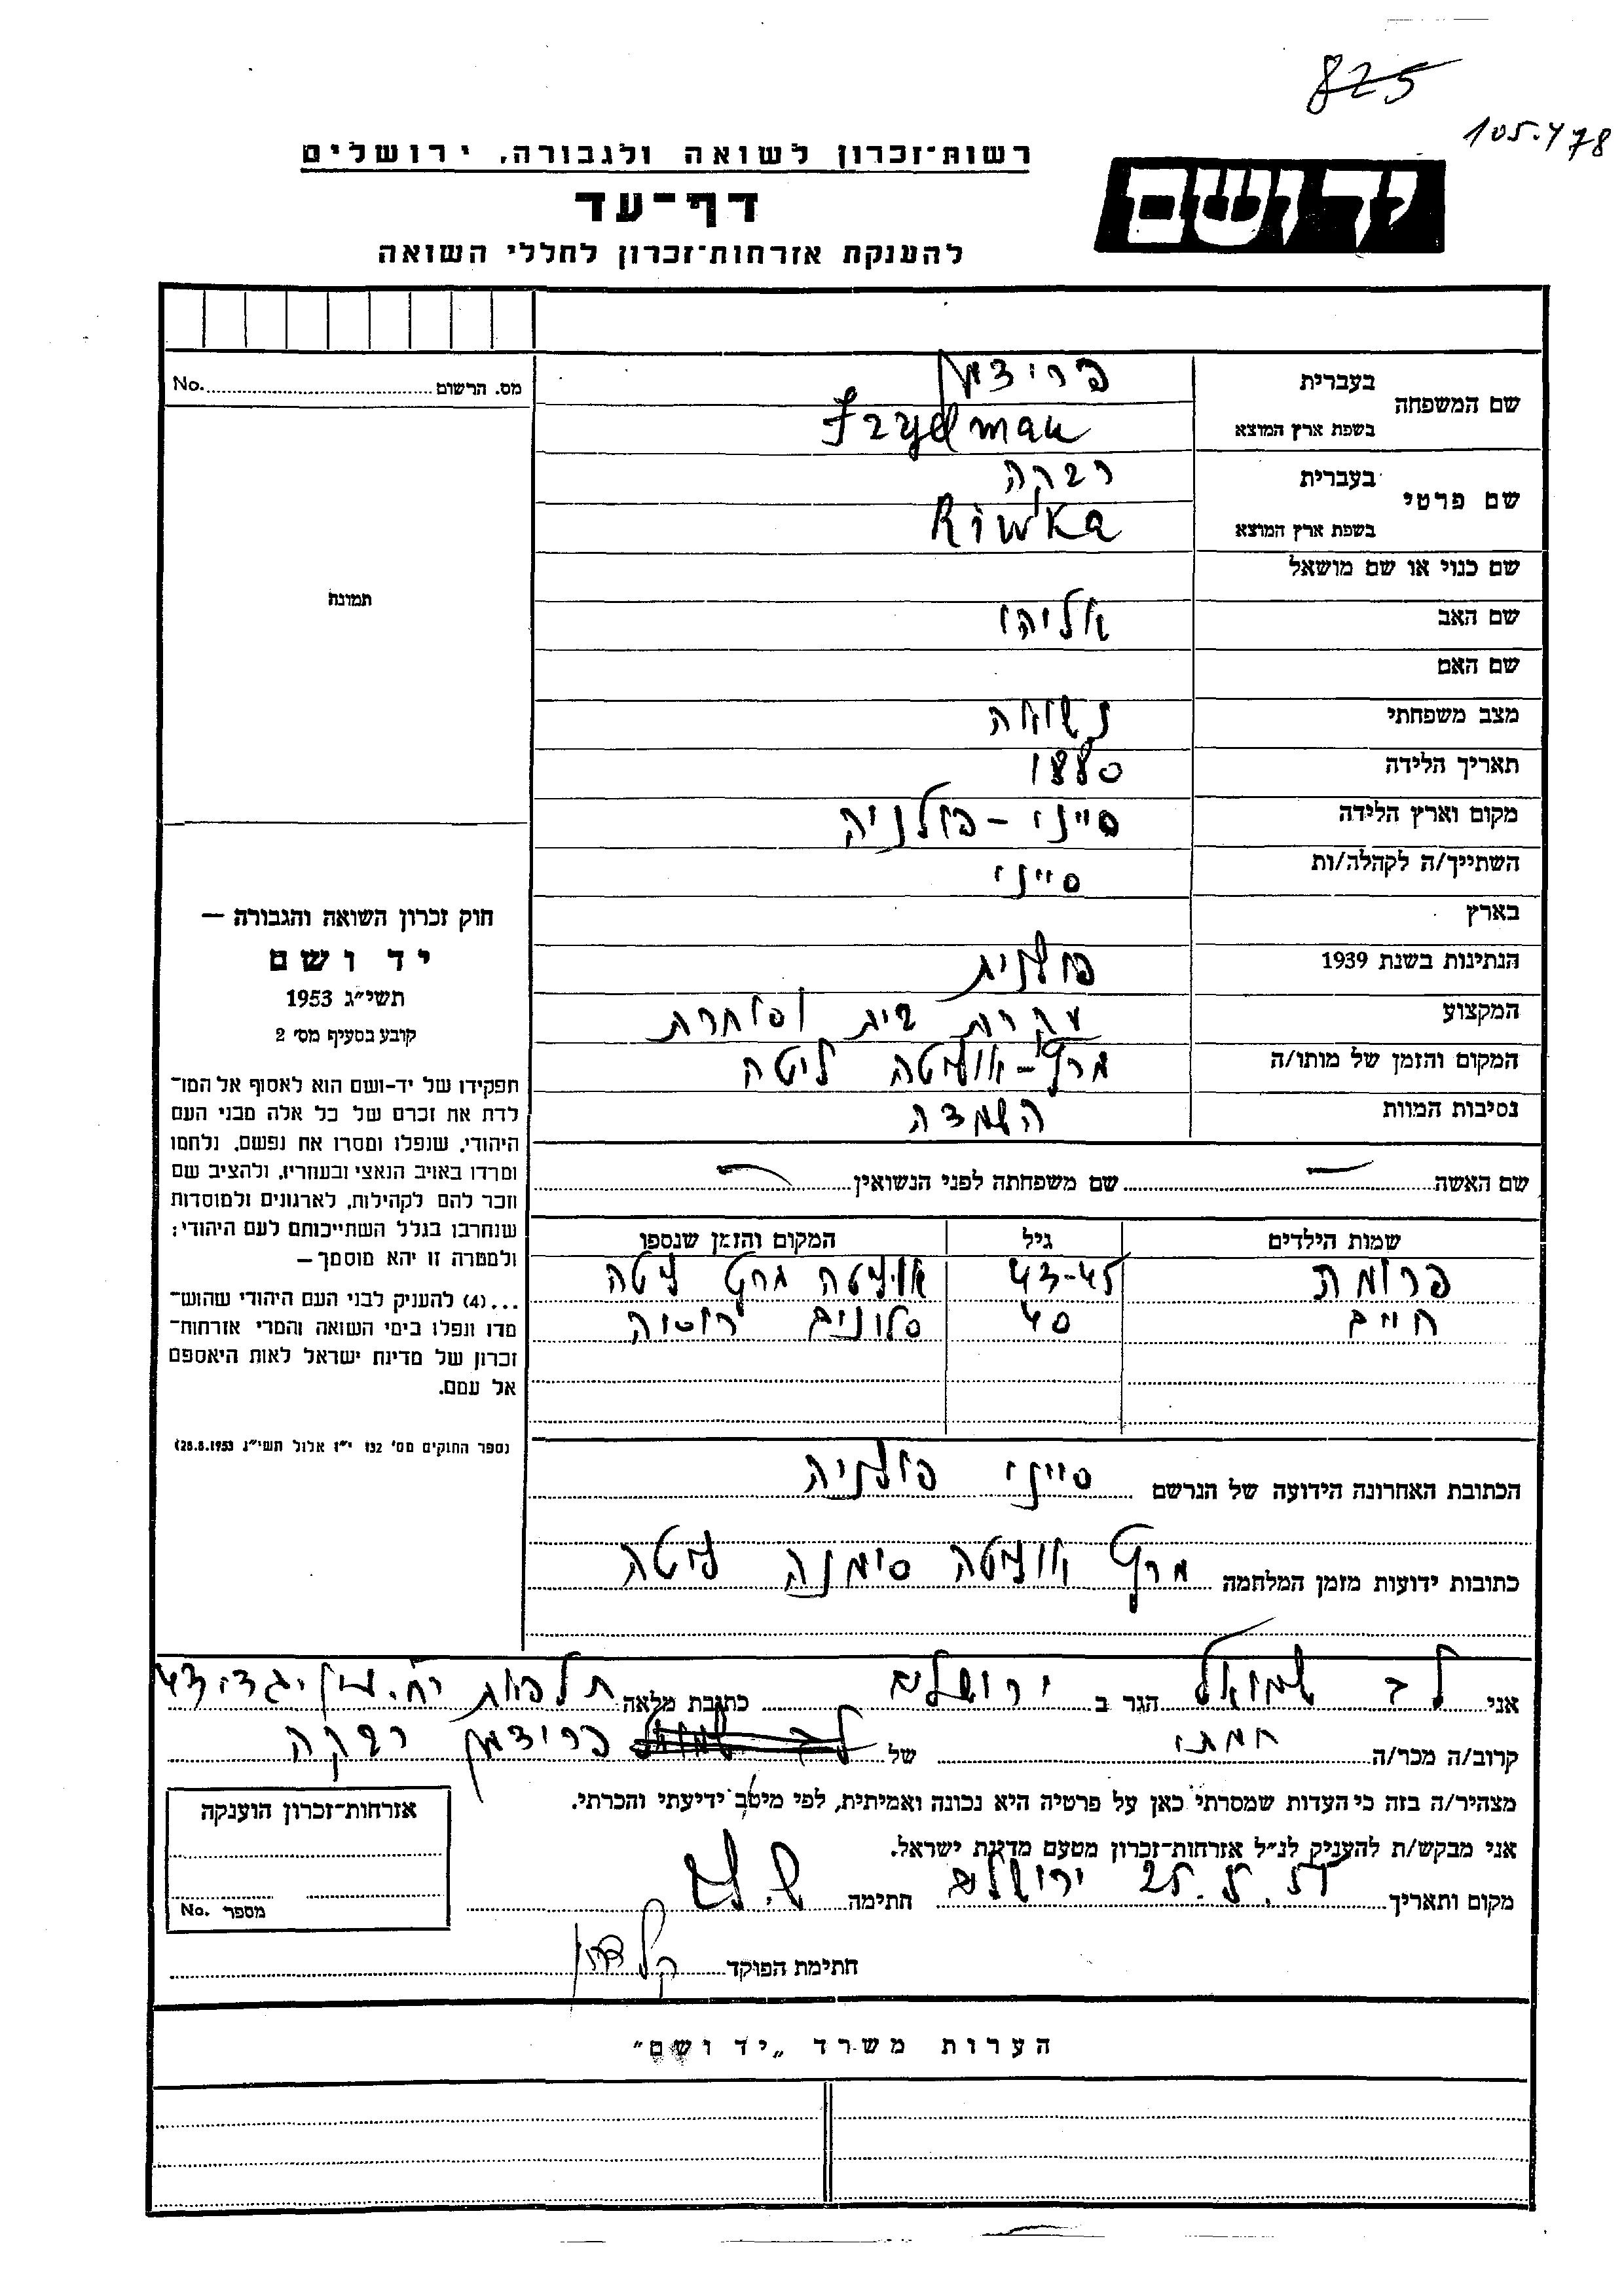 825
105.478
רשות־זכרון לשואה ולגבורה, ירושלים
יד ושם
דף־עד
להענקת אזרחות־זכרון לחללי השואה
מס. הרשום No.
שם המשפחה בעברית פרידמן
בשפת ארץ המוצא Frydman
שם פרטי בעברית רבקה
בשפת ארץ המוצא Riwka
שם כנוי או שם מושאל
שם האב אליהו
שם האם
מצב משפחתי נשואה
תאריך הלידה 1880
מקום וארץ הלידה סייני - פולניה
השתייך/ה לקהלה/ות סייני
בארץ
הנתינות בשנת 1939 פולנית
המקצוע עקרת בית וסוחרת
המקום והזמן של מותו/ה אוליטה ליטה
נסיבות המוות השמדה
תמונה
חוק זכרון השואה והגבורה —
יד ושם
תשי״ג 1953
קובע בסעיף מס׳ 2
תפקידו של יד-ושם הוא לאסוף אל המו־
לדת את זכרם של כל אלה מבני העם
היהודי, שנפלו ומסרו את נפשם, נלחמו
ומרדו באויב הנאצי ובעוזריו, ולהציב שם
וזכר להם לקהילות, לארגונים ולמוסדות
שנחרבו בגלל השתייכותם לעם היהודי;
ולמטרה זו יהא מוסמך —
...(4) להעניק לבני העם היהודי שהוש־
מדו ונפלו בימי השואה והמרי אזרחות־
זכרון של מדינת ישראל לאות היאספם
אל עמם.
(ספר החוקים מס׳ 132 י״ז אלול תשי״ג 28.8.1953)
שם האשה — שם משפחתה לפני הנשואין —
שמות הילדים גיל המקום והזמן שנספו
פרומת 43-45 אוליטה ליטה
חיים 40 סלונים רוסיה
הכתובת האחרונה הידועה של הנרשם סייני פולניה
כתובות ידועות מזמן המלחמה אוליטה סימנה ליטה
אני לב שמואל הגר ב ירושלים כתובת מלאה תלפיות רח.
קרוב/ה מכר/ה חמתי של פרידמן רבקה
מצהיר/ה בזה כי העדות שמסרתי כאן על פרטיה היא נכונה ואמיתית, לפי מיטב ידיעתי והכרתי.
אני מבקש/ת להעניק לנ״ל אזרחות־זכרון מטעם מדינת ישראל.
מקום ותאריך ירושלים 25. חתימה ש. לב
חתימת הפוקד
אזרחות־זכרון הוענקה
מספר No.
הערות משרד „יד ושם״